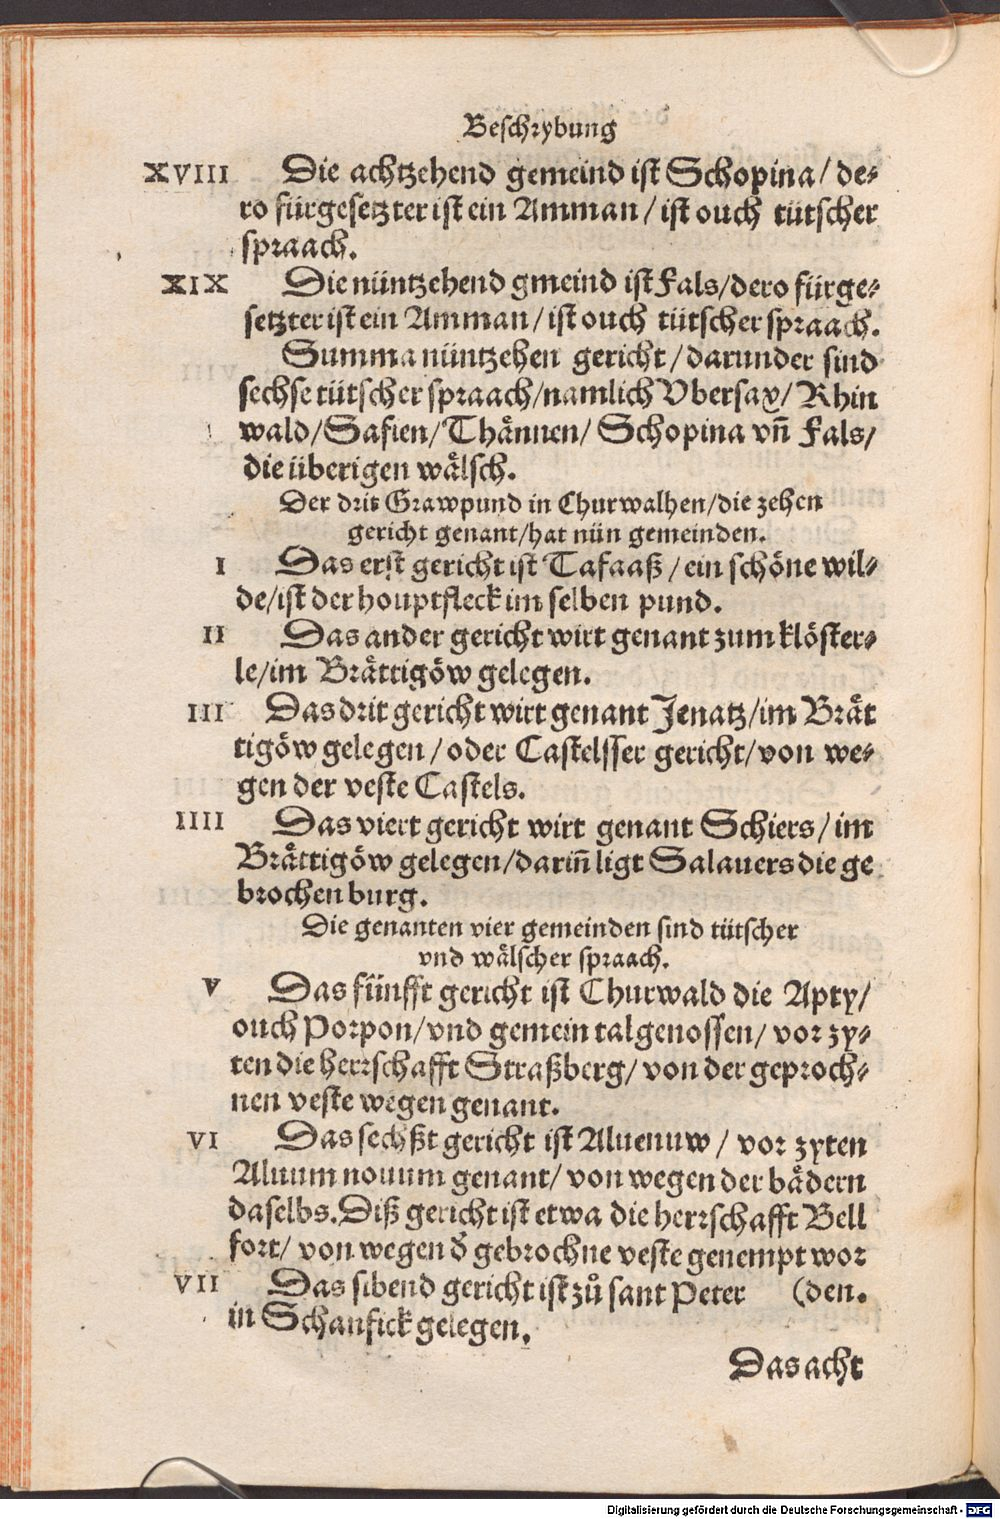 Beschrybung
XVIII Die achtzehend gemeind ist Schopina/ de-
ro fürgesetzter ist ein Amman/ ist ouch tütscher
spraach.
XIX Die nüntzehend gmeind ist Fals/dero fürge-
setzter ist ein Amman/ist ouch tütscher spraach.
Summa nüntzehen gericht/darunder sind
sechse tütscher spraach/namlich Vbersax/ Rhin
wald/Safien/Thännen/ Schopina vñ Fals/
die überigen wälsch.
Der drit Grawpund in Churwalhen/die zehen
gericht genant/hat nün gemeinden.
I Das erst gericht ist Tafaaß/ein schöne wil-
de/ist der houptfleck im selben pund.
II Das ander gericht wirt genant zum klöster-
le/im Brättigöw gelegen.
III Das drit gericht wirt genant Jenatz/im Brät
tigöw gelegen/oder Castelsser gericht/von we-
gen der veste Castels.
IIII Das viert gericht wirt genant Schiers/im
Brättigöw gelegen/dariñ ligt Salauers die ge
brochen burg.
Die genanten vier gemeinden sind tütscher
vnd wälscher spraach.
V Das fünfft gericht ist Churwald die Apty/
ouch Porpon/vnd gemein talgenossen/ vor zy-
ten die herrschafft Straßberg/ von der geproch-
nen veste wegen genant.
VI Das sechßt gericht ist Aluenuw/ vor zyten
Aluum nouum genant/ von wegen der bädern
daselbs. Diß gericht ist etwa die herrschafft Bell
fort/ von wegen d̕ gebrochne veste genempt wor
VII Das sibend gericht ist zů sant Peter (den.
in Schanfick gelegen.
Das acht
Digitalisierung gefördert durch die Deutsche Forschungsgemeinschaft - DFG